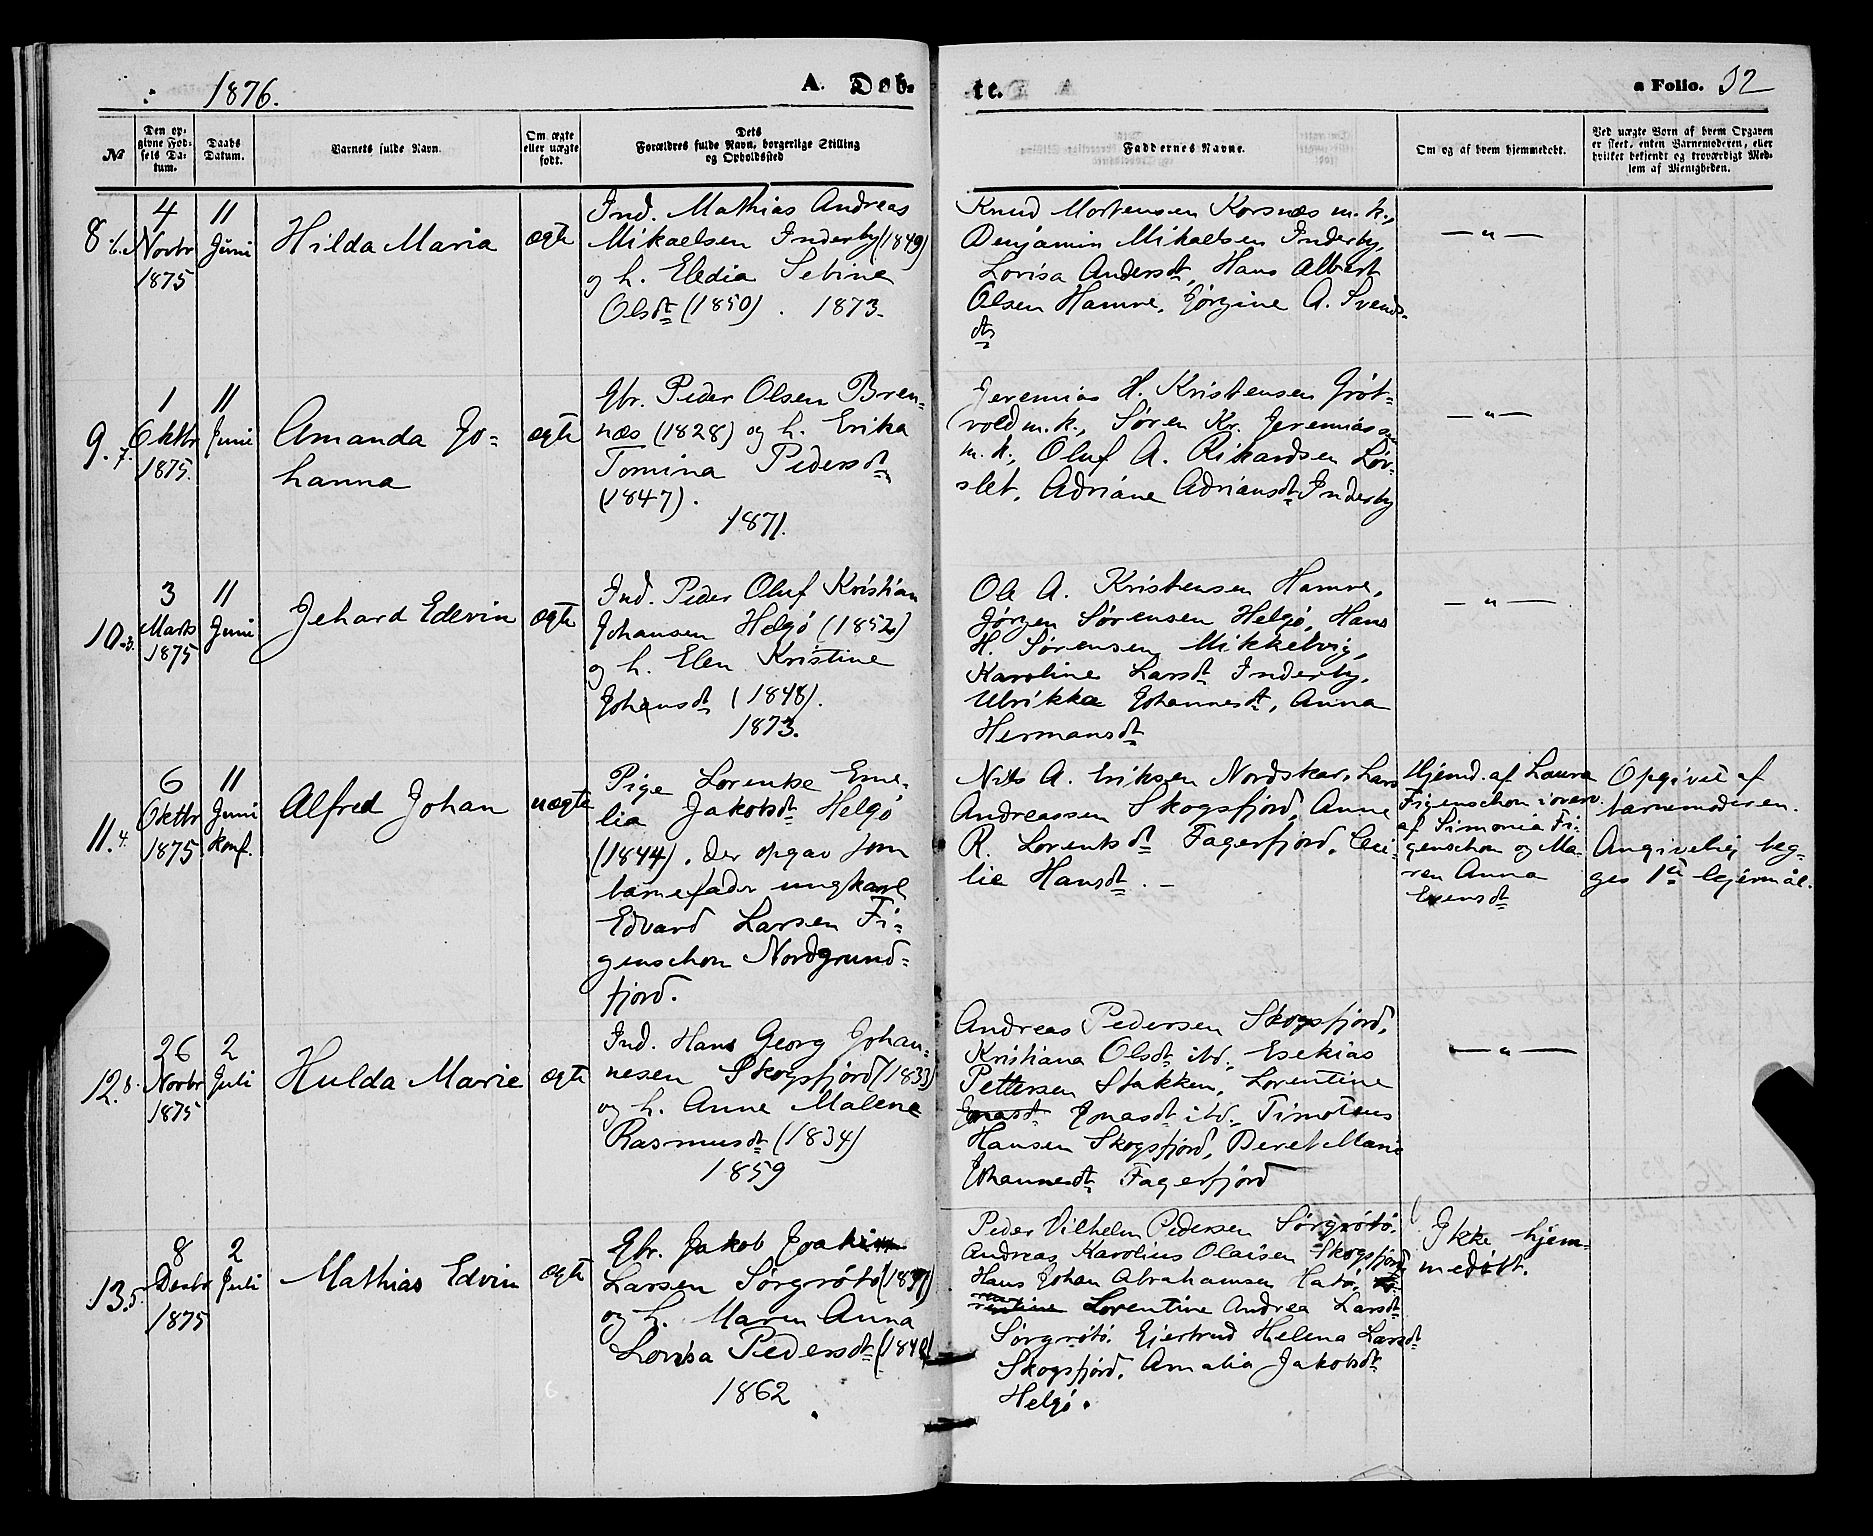 1876.
A. Døb-
te.
a Folio. 32
№
Den op-
givne Fød-
sels Da-
tum.
Daabs
Datum.
Barnets fulde Navn.
Om ægte
eller uægte
født.
Dets
Forældres fulde Navn, borgerlige Stilling
og Opholdssted
Faddernes Navne.
Om og af hvem hjemmedøbt.
Ved uægte Børn af hvem Opgaven
er skeet, enten Barnemoderen, eller
hvilket bekjendt og troværdigt Med-
lem af Menigheden.
8. 6.
4
Novbr
1875
11
Juni
Hilda Maria
ægte
Ind. Mathias Andreas
Mikaelsen Inderby (1849)
og h. Eledia Sebine
Olsdt (1850). 1873.
Knud Mortensen Korsnæs m.k.,
Benjamin Mikaelsen Inderby,
Lovisa Andersdt, Hans Albert
Olsen Hamre, Jørgine A. Svends-
dtr
— " —
9. 7.
1
Oktbr
1875.
11
Juni
Amanda Jo-
hanna
ægte
Gbr. Peder Olsen Bren-
næs (1828) og h. Erika
Tomina Pedersdt
(1847).
1871.
Jeremias H. Kristensen Grøt-
vold m.k., Søren Kr. Jeremiassen
m.k., Oluf A. Rikardsen Løv-
slet, Adriane Adriansdt Inderby
— " —
10. 3.
3
Marts
1875
11
Juni
Jehard Edevin
ægte
Ind. Peder Oluf Kristian
Johansen Helgø (1852)
og h. Elen Kristine
Johansdt (1848).
1873.
Ole A. Kristensen Hamre,
Jørgen Sørensen Helgø, Hans
H. Sørensen Mikkelvig,
Karoline Larsdt Inderby,
Ulrikka Johannesdt, Anna
Hermansdt
— " —
11. 4.
6
Oktbr
1875
11
Juni
konf.
Alfred Johan
uægte
Pige Lorentse Eme-
lia Jakobsdt Helgø
(1844). Der opgav som
barnefader ungkarl
Edvard Larsen Fi-
genschou Nordgrund-
fjord.
Nils A. Eriksen Nordskar, Lars
Andreassen Skogsfjord, Anne
R. Lorentsdt Fagerfjord, Ceci-
lie Hansdt. -
Hjemd. af Laura
Figenschou i overv.
af Simonia Fi-
genschou og Ma-
ren Anna
Evensdt
Opgivet af
barnemoderen.
Angivelig beg-
ges 1ste leiermål.
12. 8.
26
Novbr
1875
2
Juli
Hulda Marie
ægte
Ind. Hans Georg Johan-
nesen Skogsfjord (1833)
og h. Anne Malene
Rasmusdt (1834)
1859
Andreas Pedersen Skogsfjord,
Kristiana Olsdt ibd., Esekias
Pettersen Stakken, Lorentine
Jonasdt Jonasdt ibd., Timoteus
Hansen Skogsfjord, Beret Marie
Johannesdt Fagerfjord
— " —
13. 5.
8
Desbr
1875
2
Juli
Mathias Edvin
ægte
Gbr. Jakob Joakim
Larsen Sørgrøtø (1837)
og h. Maren Anna
Lovisa Pedersdt (1840)
1862
Peder Vilhelm Pedersen Sørgrøtø.
Andreas Karolius Olaisen Skogsfjord,
Hans Johan Abrahamsen
Lorentine Andrea Larsdt
Sørgrøtø. Gjertrud Helena Larsdt
Skogsfjord, Amalia Jakobsdt
Helgø.
Ikke hjem-
medøbt.